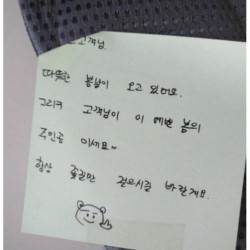 고객님.
따뜻한 봄날이 오고 있어요.
그리고 고객님이 이 예쁜 봄의
주인공 이세요~
항상 꽃길만 걸으시길 바랄게요.